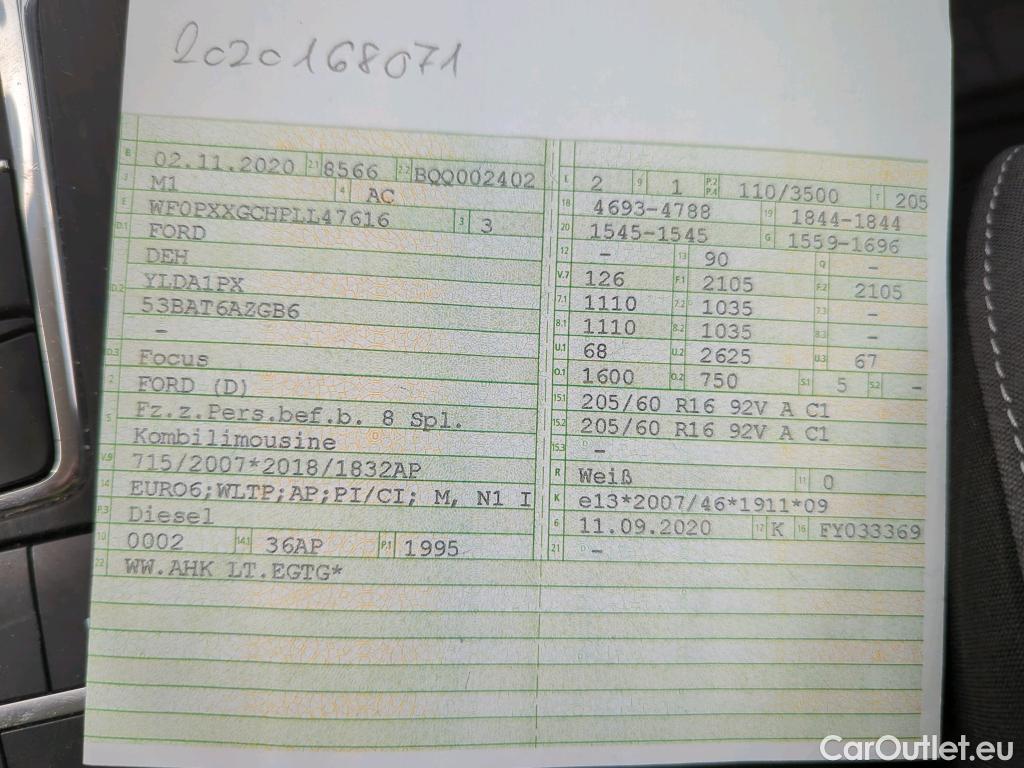 2020168071
B 02.11.2020 2.1 8566 2.2 BQQ002402
J M1 4 AC
E WF0PXXGCHPLL47616 3 3
D.1 FORD
DEH
D.2 YLDA1PX
53BAT6AZGB6
–
D.3 Focus
2 FORD (D)
5 Fz.z.Pers.bef.b. 8 Spl.
Kombilimousine
V.9 715/2007*2018/1832AP
14 EURO6;WLTP;AP;PI/CI; M, N1 I
P.3 Diesel
10 0002 14.1 36AP P.1 1995
22 WW.AHK LT.EGTG*
L 2 9 1 P.2 P.4 110/3500 T 205
18 4693-4788 19 1844-1844
20 1545-1545 G 1559-1696
12 – 13 90 Q –
V.7 126 F.1 2105 F.2 2105
7.1 1110 7.2 1035 7.3 –
8.1 1110 8.2 1035 8.3 –
U.1 68 U.2 2625 U.3 67
O.1 1600 O.2 750 S.1 5 S.2 –
15.1 205/60 R16 92V A C1
15.2 205/60 R16 92V A C1
15.3 –
R Weiß 11 0
K e13*2007/46*1911*09
6 11.09.2020 17 K 16 FY033369
21 –
CarOutlet.eu